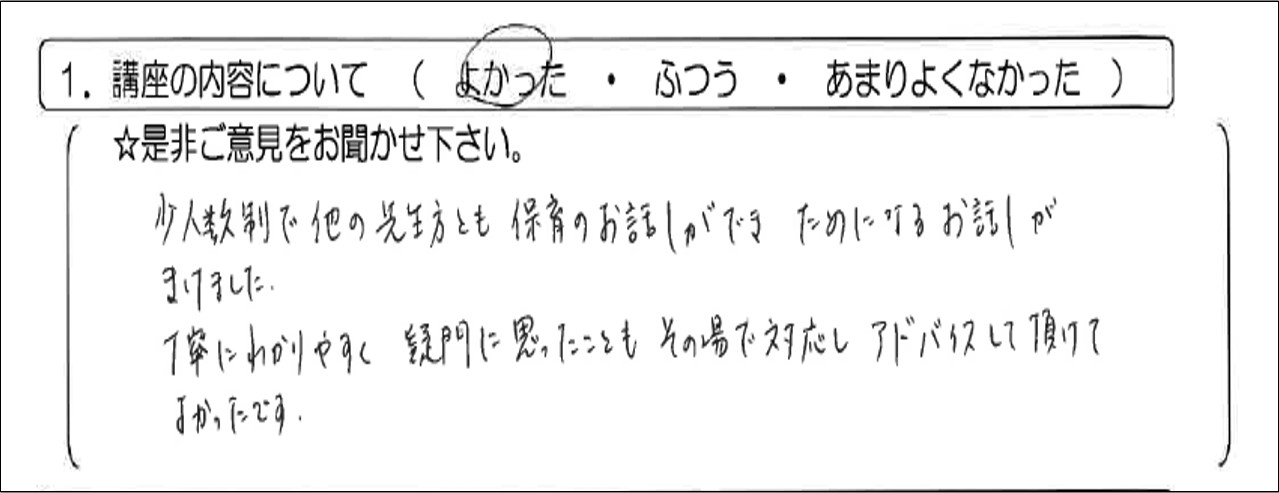 1. 講座の内容について ( よかった ・ ふつう ・ あまりよくなかった )
☆是非ご意見をお聞かせ下さい。
少人数制で他の先生方とも保育のお話しができ ためになるお話しが
きけました.
丁寧にわかりやすく 疑問に思ったことも その場で対応し アドバイスして頂けて
よかったです.